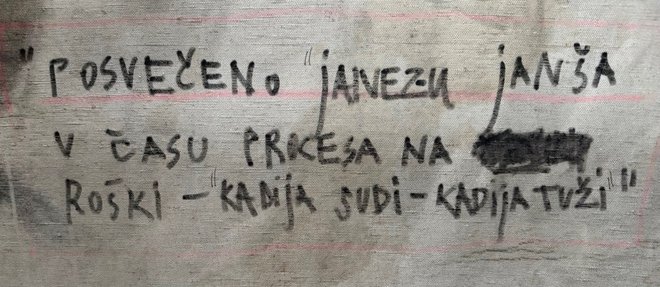 "POSVEČENO "JANEZU JANŠA
V ČASU PROCESA NA
ROŠKI - "KADIJA SUDI - KADIJA TUŽI""